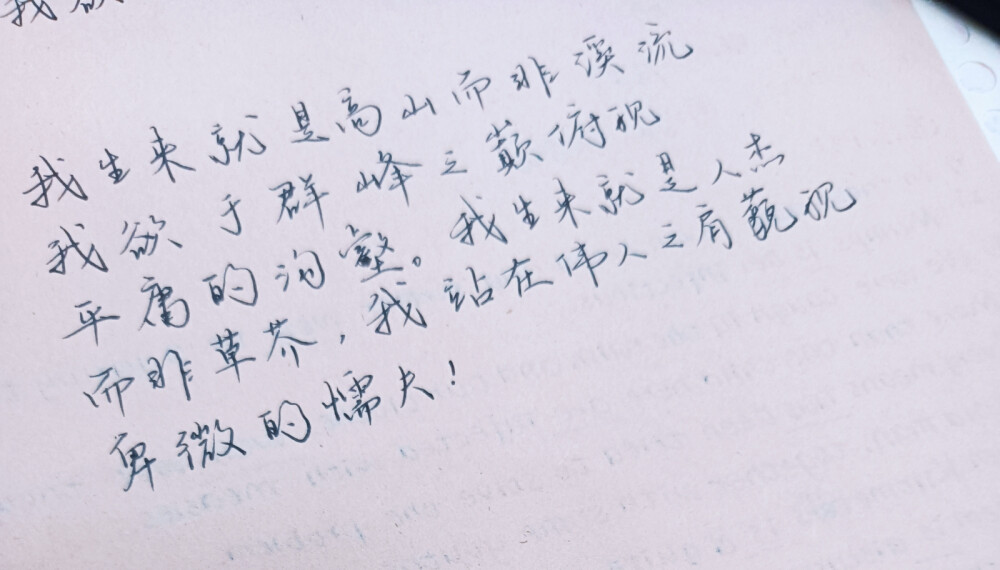 我欲
我生来就是高山而非溪流
我欲于群峰之巅俯视
平庸的沟壑。我生来就是人杰
而非草芥，我站在伟人之肩藐视
卑微的懦夫！